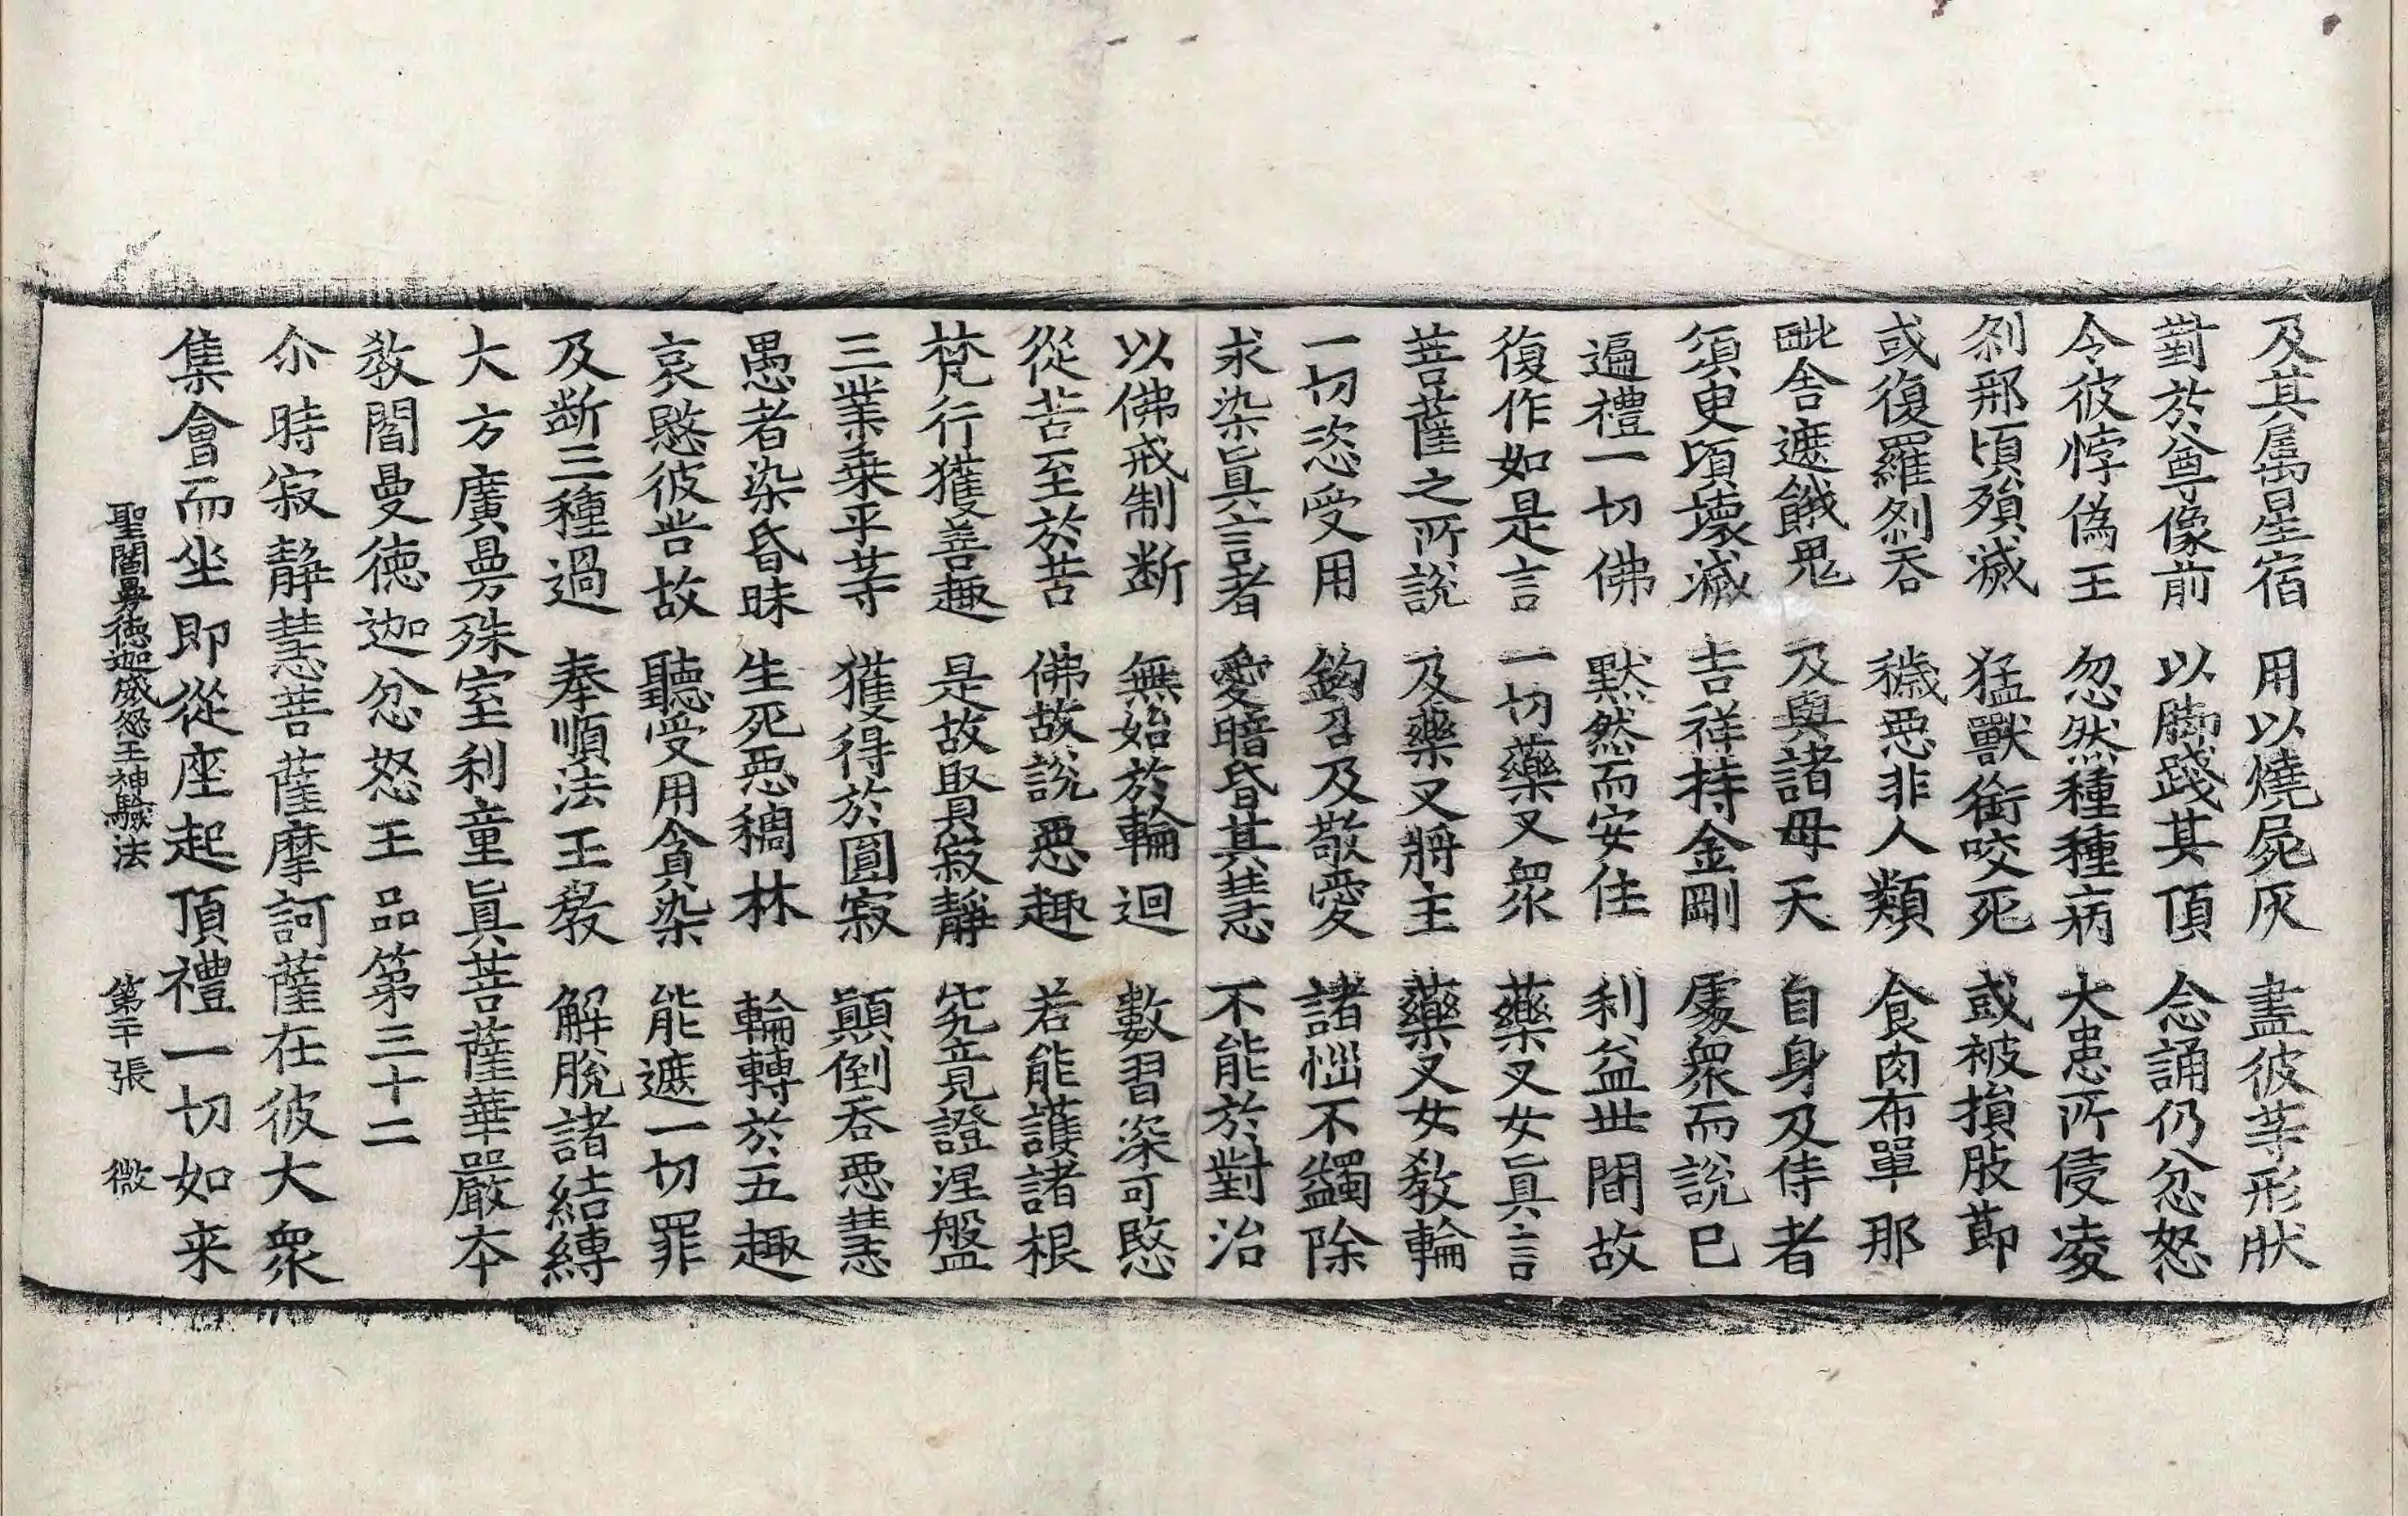 及其属星宿 用以燒屍灰 盡彼等形狀
對於尊像前 以脚踐其頂 念誦仍忿怒
令彼悖偽王 忽然種種病 大患所侵淩
刹那頃殞滅 猛獸銜咬死 或被損肢節
或復羅刹吞 穢惡非人類 食肉布單那
毗舍遮餓鬼 及與諸母天 自身及侍者
須臾頃壞滅 吉祥持金剛 處衆而說已
遍禮一切佛 默然而安住 利益世間故
復作如是言 一切藥叉衆 藥叉女眞言
菩薩之所說 及藥叉將主 藥叉女教輪
一切恣受用 鉤召及敬愛 諸惱不蠲除
求染眞言者 愛暗昏其慧 不能於對治
以佛戒制斷 無始於輪迴 數習深可愍
從苦至於苦 佛故說惡趣 若能護諸根
梵行獲善趣 是故賢寂靜 究竟證涅盤
三業乘平等 獲得於圓寂 顚倒吞惡慧
愚者染昏昧 生死惡稠林 輪轉於五趣
哀愍彼皆故 聽受用貪染 能遮一切罪
及斷三種過 奉順法王教 解脫諸結縛
大方廣曼殊室利童眞菩薩華嚴本
教閻曼德迦忿怒王品第三十二
尒時寂靜慧菩薩摩訶薩在彼大衆
集會而坐即從座起頂禮一切如来
聖閻曼德迦威怒王神驗法 第二十張 微